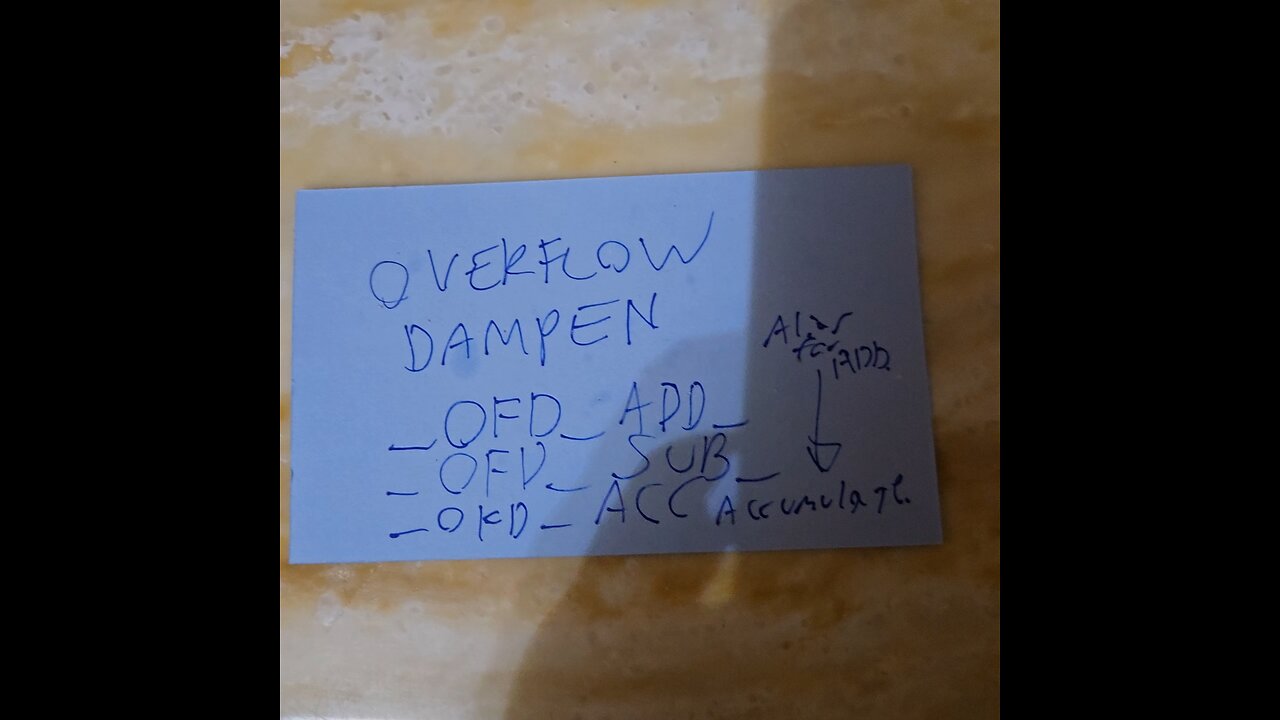 OVERFLOW
DAMPEN
_OFD_ADD_
_OFD_SUB_
_OFD_ACC Accumulate.
for
ADD.